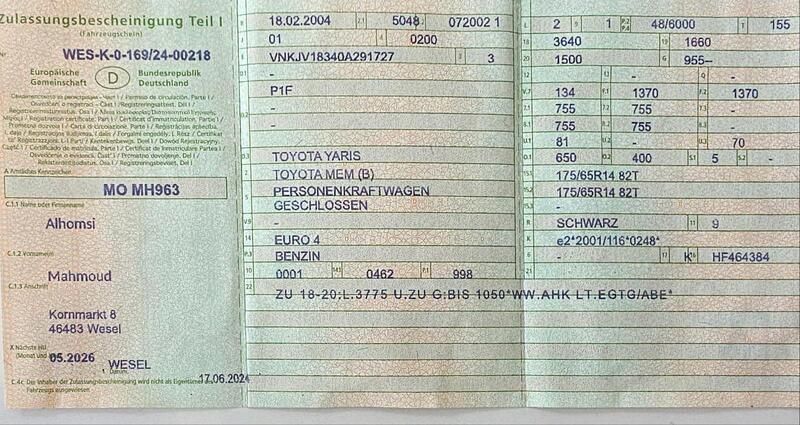 Zulassungsbescheinigung Teil I
(Fahrzeugschein)
Nr.
WES-K-0-169/24-00218
Europäische Gemeinschaft
D
Bundesrepublik Deutschland
A Amtliches Kennzeichen
MO MH963
C.1.1 Name oder Firmenname
Alhomsi
C.1.2 Vorname(n)
Mahmoud
C.1.3 Anschrift
Kornmarkt 8
46483 Wesel
X Nächste HU
(Monat und
05.2026
WESEL
Datum
17.06.2024
C.4c Der Inhaber der Zulassungsbescheinigung wird nicht als Eigentümer des
Fahrzeugs ausgewiesen.
B 18.02.2004 2.1 5048 072002 1
01 4 0200
E VNKJV18340A291727 3 3
D.1 -
P1F
D.2 -
-
D.3 TOYOTA YARIS
2 TOYOTA MEM (B)
5 PERSONENKRAFTWAGEN
GESCHLOSSEN
V.9 -
14 EURO 4
P.3 BENZIN
10 0001 14.1 0462 P.1 998
22 ZU 18-20;L.3775 U.ZU G:BIS 1050*WW.AHK LT.EGTG/ABE*
L 2 9 1 P.2 P.4 48/6000 T 155
18 3640 19 1660
20 1500 G 955--
12 - 13 - Q -
V.7 134 F.1 1370 F.2 1370
7.1 755 7.2 755 7.3 -
8.1 755 8.2 755 8.3 -
U.1 81 U.2 - U.3 70
O.1 650 O.2 400 S.1 5 S.2 -
15.1 175/65R14 82T
15.2 175/65R14 82T
15.3 -
R SCHWARZ 11 9
K e2*2001/116*0248*
6 - 17 K 16 HF464384
21